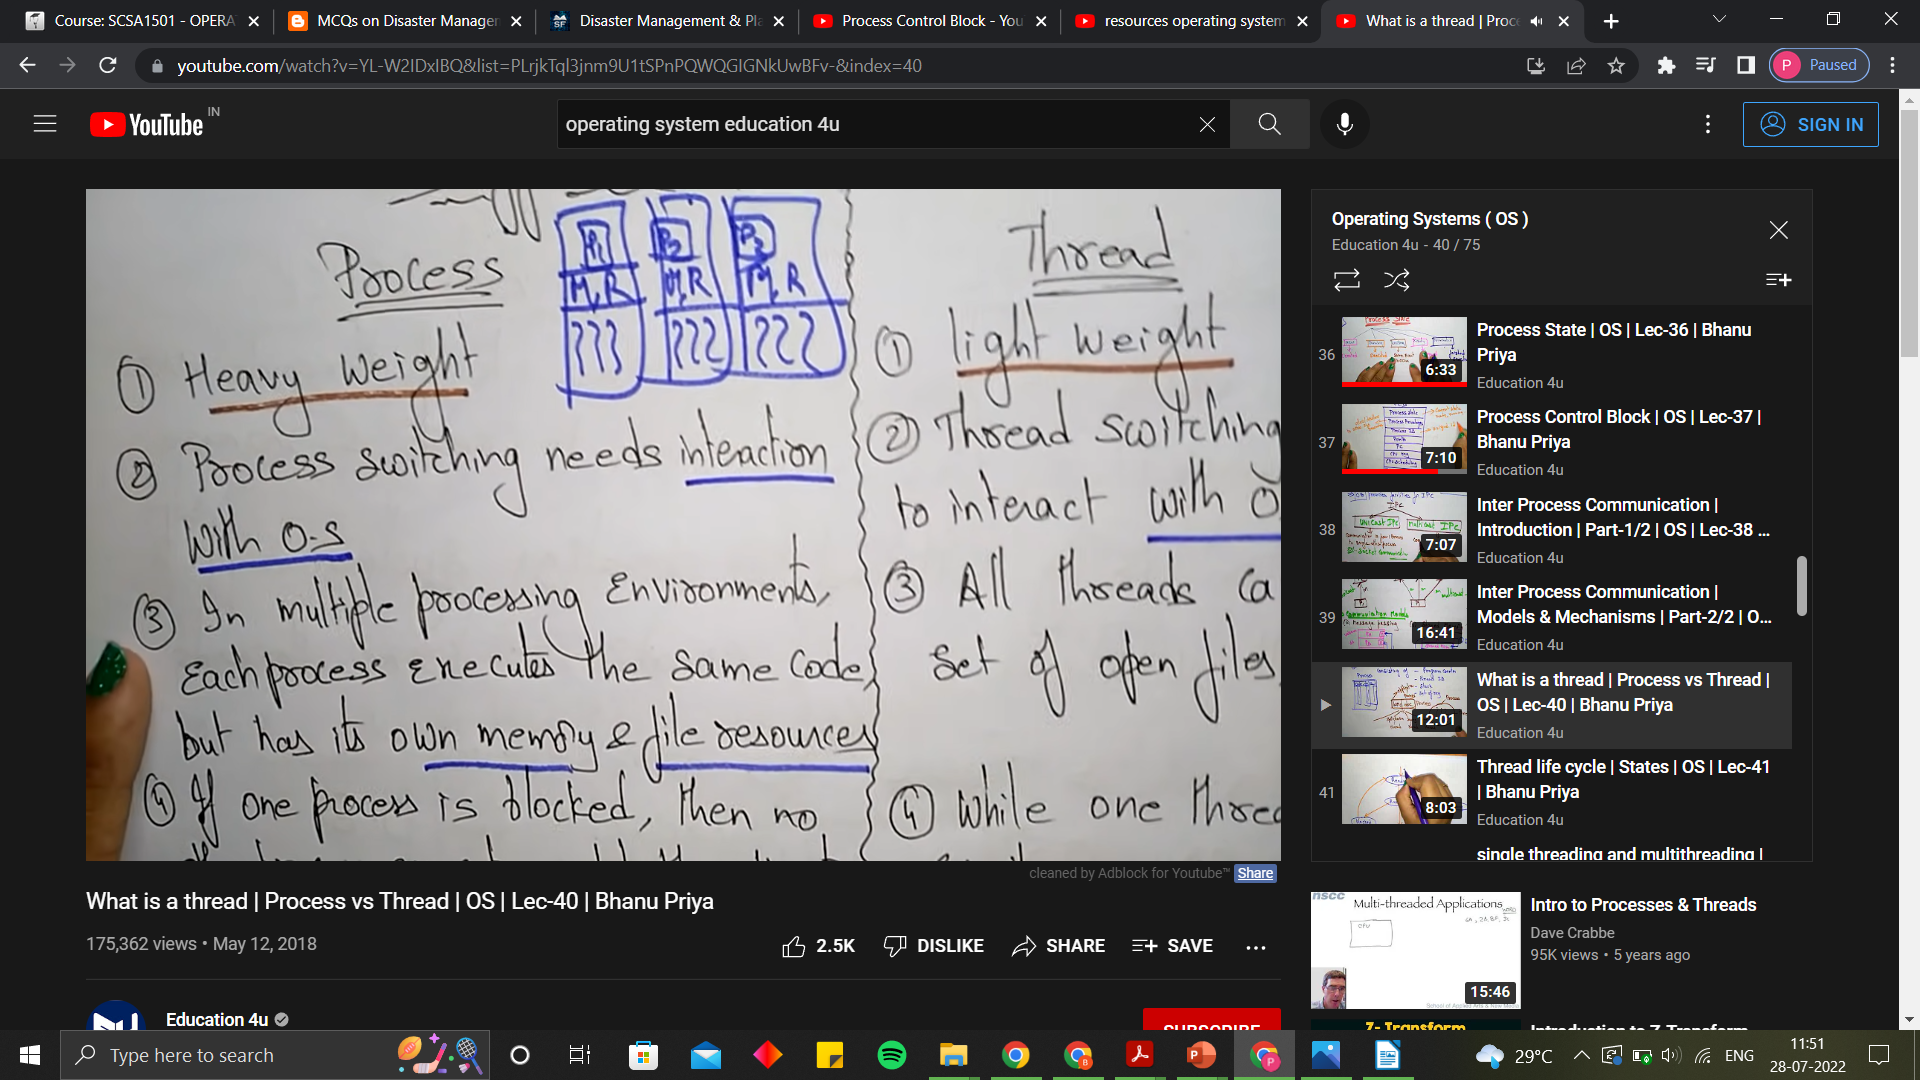 Course: SCSA1501 - OPERA
MCQs on Disaster Managem
Disaster Management & Pla
Process Control Block - You
resources operating system
What is a thread | Proce
youtube.com/watch?v=YL-W2IDxIBQ&list=PLrjkTql3jnm9U1tSPnPQWQGIGNkUwBFv-&index=40
P Paused
YouTube IN
operating system education 4u
SIGN IN
Process
P1 P2 P3
M,R M,R M,R
① Heavy Weight
② Process switching needs interaction
with O.S
③ In multiple processing Environments,
Each process Executes the same code,
but has its own memory & file resources
④ If one process is blocked, then no
Thread
① light weight
② Thread switching
to interact with O
③ All threads ca
Set of open files
④ While one threa
cleaned by Adblock for Youtube™ Share
What is a thread | Process vs Thread | OS | Lec-40 | Bhanu Priya
175,362 views • May 12, 2018
2.5K DISLIKE SHARE SAVE ...
Education 4u
SUBSCRIBE
Operating Systems ( OS )
Education 4u - 40 / 75
36
6:33
Process State | OS | Lec-36 | Bhanu
Priya
Education 4u
37
7:10
Process Control Block | OS | Lec-37 |
Bhanu Priya
Education 4u
38
7:07
Inter Process Communication |
Introduction | Part-1/2 | OS | Lec-38 ...
Education 4u
39
16:41
Inter Process Communication |
Models & Mechanisms | Part-2/2 | O...
Education 4u
12:01
What is a thread | Process vs Thread |
OS | Lec-40 | Bhanu Priya
Education 4u
41
8:03
Thread life cycle | States | OS | Lec-41
| Bhanu Priya
Education 4u
single threading and multithreading |
nscc
Multi-threaded Applications
15:46
Intro to Processes & Threads
Dave Crabbe
95K views • 5 years ago
Z- Transform
Introduction to Z-Transform
Type here to search
29°C
ENG
11:51
28-07-2022